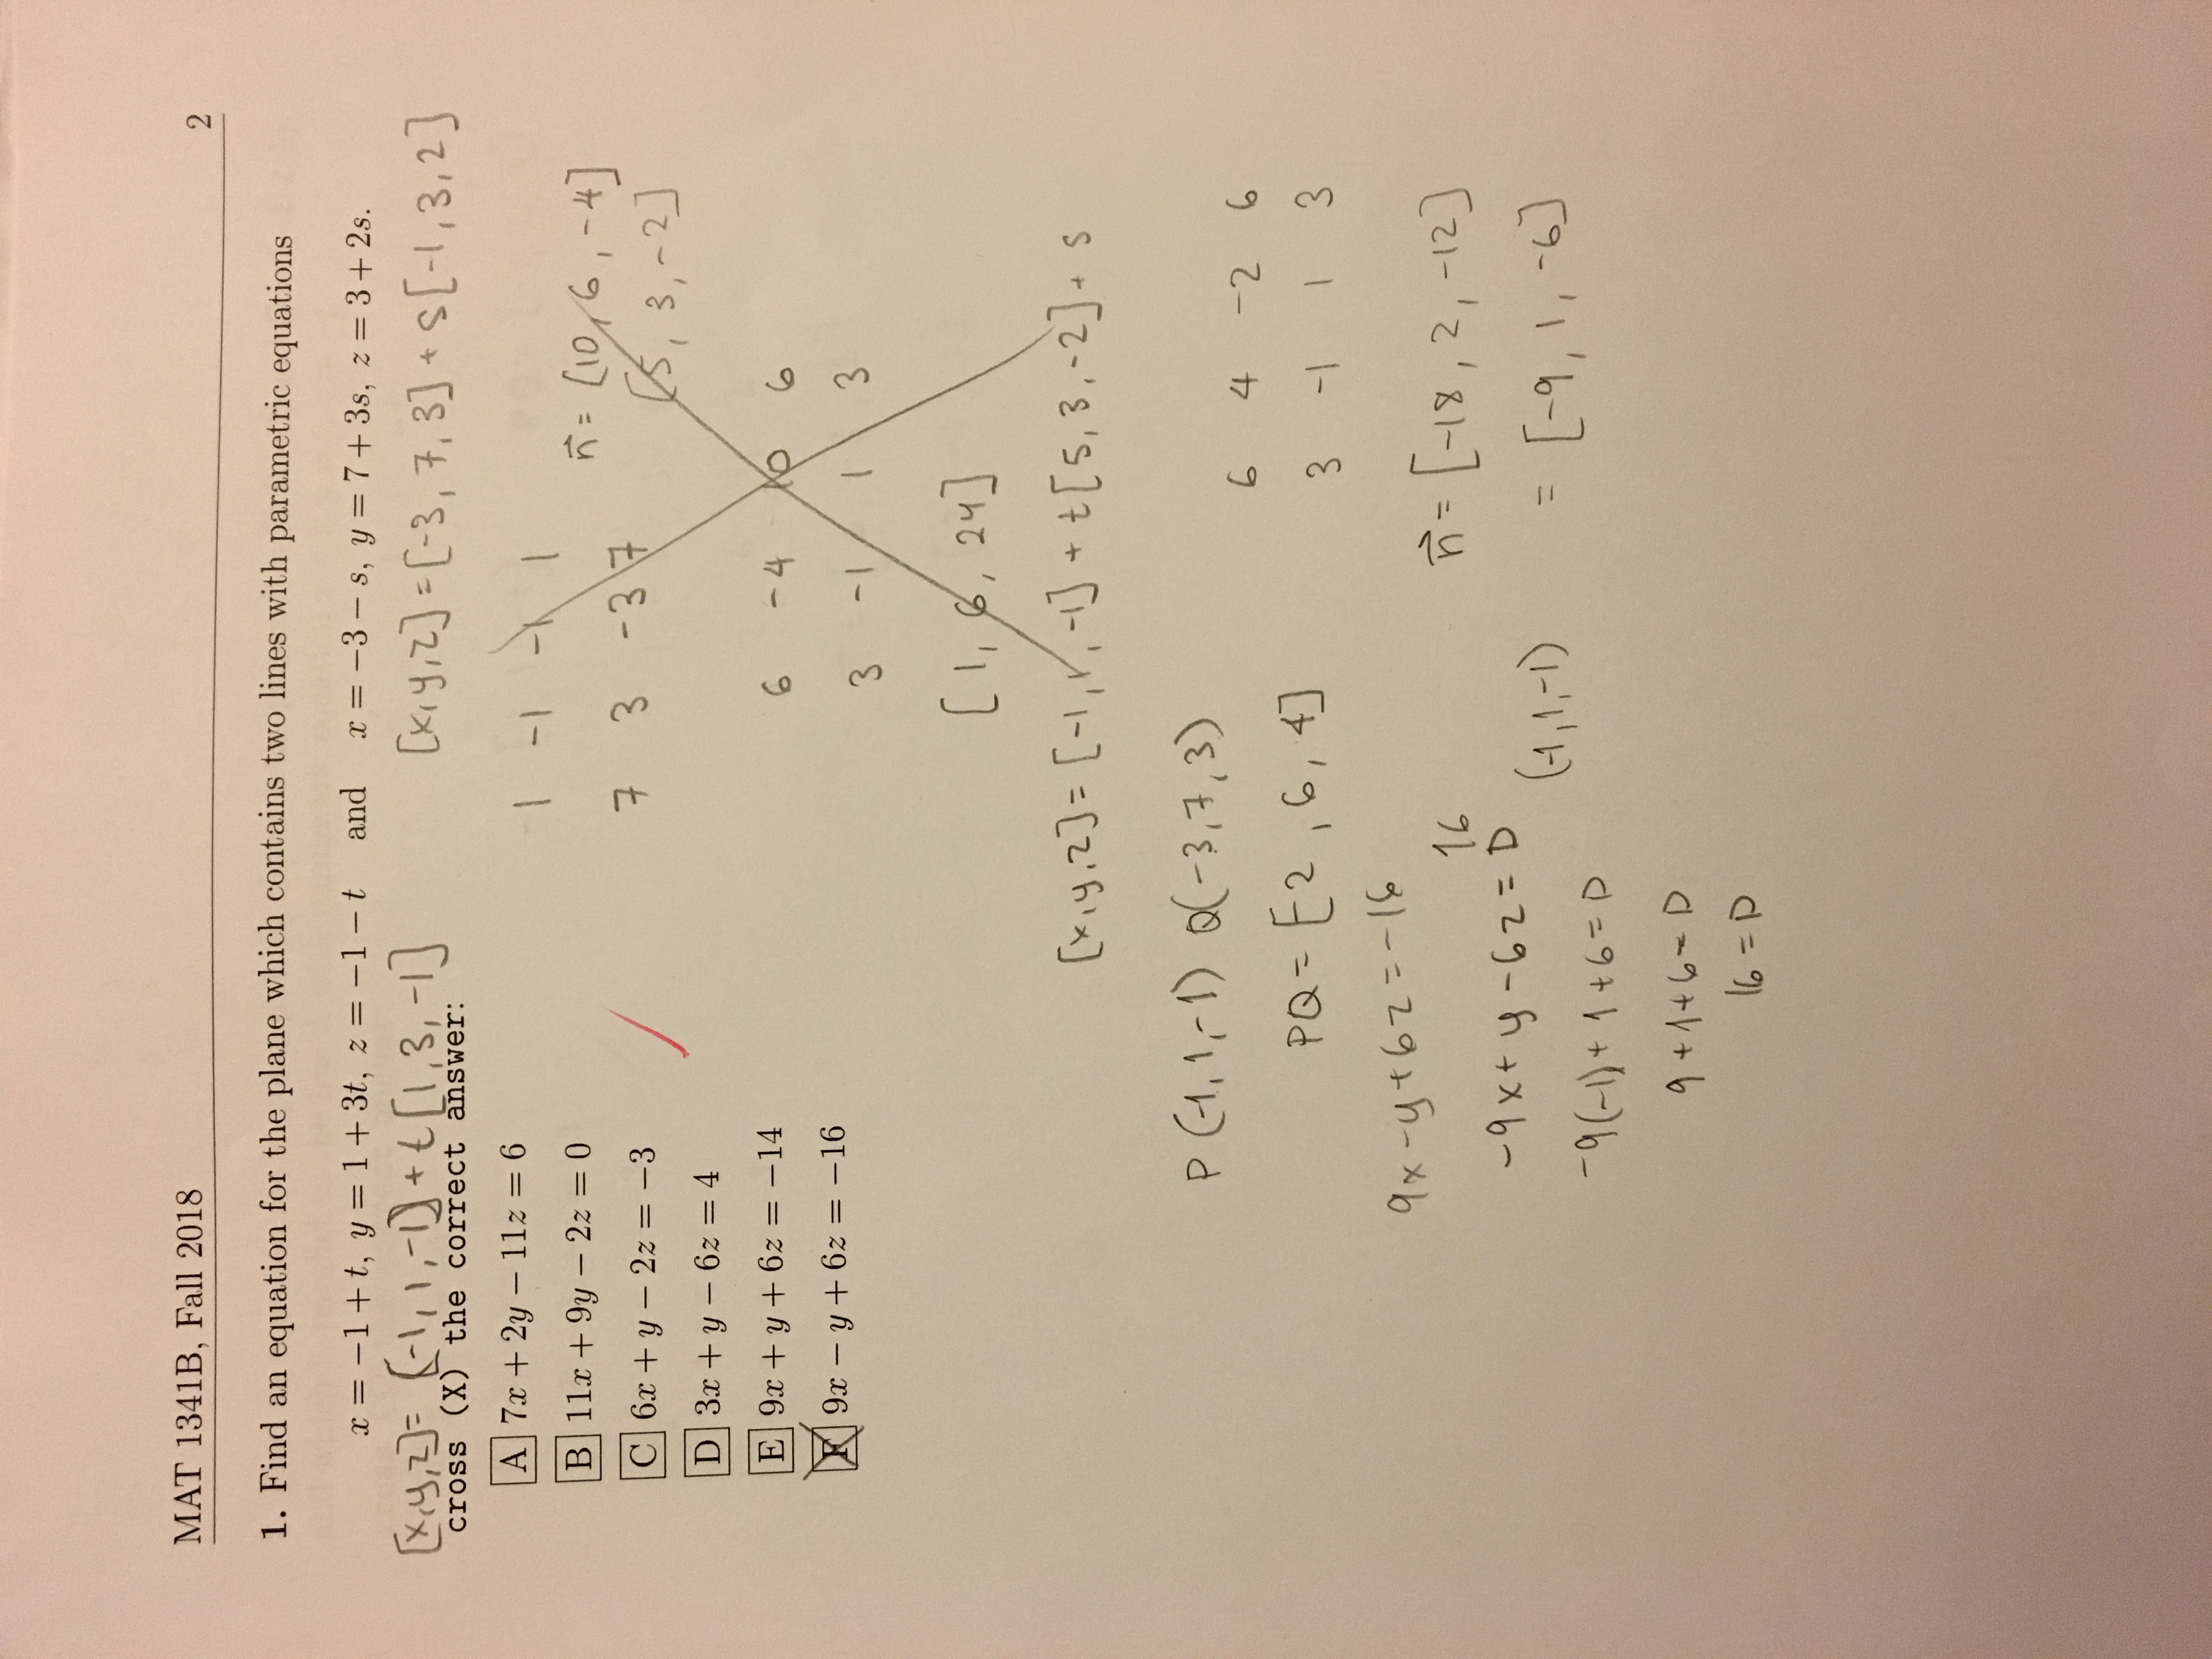 MAT 1341B, Fall 2018 2
1. Find an equation for the plane which contains two lines with parametric equations
x = −1 + t, y = 1 + 3t, z = −1 − t and x = −3 − s, y = 7 + 3s, z = 3 + 2s.
[x,y,z] = [-1,1,-1] + t[1,3,-1] [x,y,z] = [-3,7,3] + s[-1,3,2]
cross (X) the correct answer:
A 7x + 2y − 11z = 6
B 11x + 9y − 2z = 0
C 6x + y − 2z = −3
D 3x + y − 6z = 4
E 9x + y + 6z = −14
F 9x − y + 6z = −16
1 -1 -1 1
7 3 -3 7
n = [10, 6, -4]
[5, 3, -2]
6 -4 10 6
3 -1 1 3
[1, 6, 24]
[x,y,z] = [-1,1,-1] + t[5,3,-2] + s
P(-1,1,-1) Q(-3,7,3)
PQ = [-2, 6, 4]
6 4 -2 6
3 -1 1 3
n = [-18, 2, -12]
= [-9, 1, -6]
9x - y + 6z = -16
16
-9x + y - 6z = D
(-1,1,-1)
-9(-1) + 1 + 6 = D
9 + 1 + 6 = D
16 = D